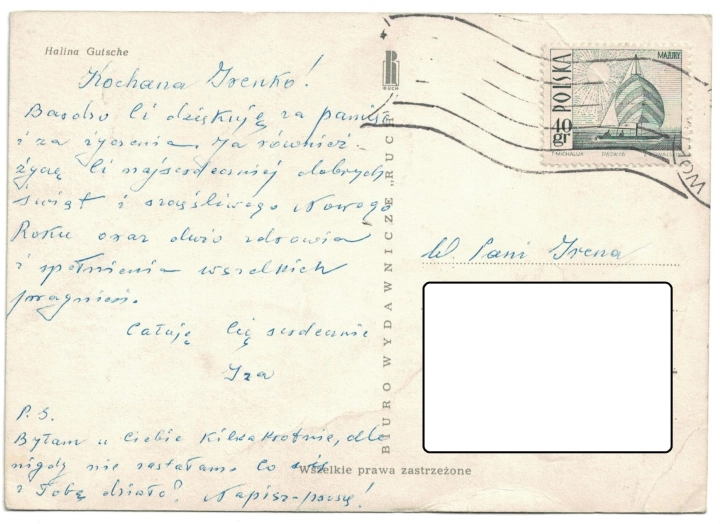 Halina Gutsche
Kochana Irenko!
Bardzo Ci dziękuję za pamięć
i za życzenia. Ja również
życzę Ci najserdeczniej dobrych
świąt i szczęśliwego Nowego
Roku oraz dużo zdrowia
i spełnienia wszelkich
pragnień.
Całuję Cię serdecznie
Iza
P.S.
Byłam u Ciebie kilkakrotnie, ale
nigdy nie zastałam. Co się
z Tobą działo? Napisz-proszę!
RUCH
BIURO WYDAWNICZE „RUCH”
Wszelkie prawa zastrzeżone
POLSKA
MAZURY
40 gr
T. MICHALUK
W. Pani Irena